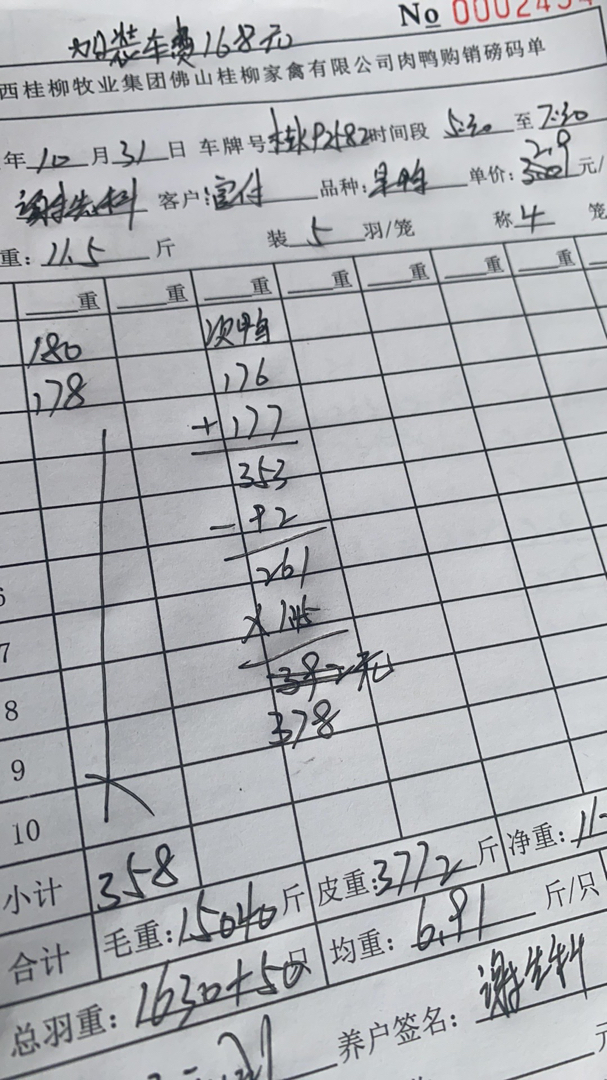 加装车费168元
No 0002454
西桂柳牧业集团佛山桂柳家禽有限公司肉鸭购销磅码单
年 10 月 31 日 车牌号 时间段 5:30 至 7:30
客户: 品种: 单价: 2.9 元/
重: 11.5 斤 装 5 羽/笼 称 4 笼
重 重 重 重 重 重 重
180 次鸭
178 176
+177
353
-92
261
6
7
8
378
9
10
小计 358
合计 毛重: 15040 斤 皮重: 3772 斤 净重: 11
总羽重: 1630+50只 均重: 6.91 斤/只
养户签名: